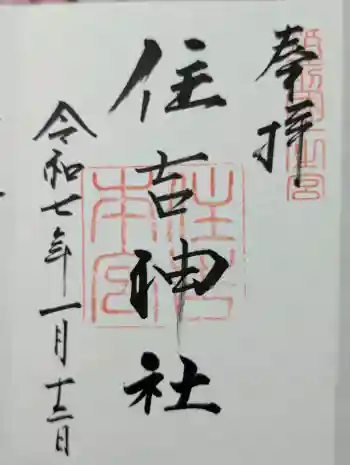 奉拝
住吉神社
令和七年一月十三日
住吉本宮